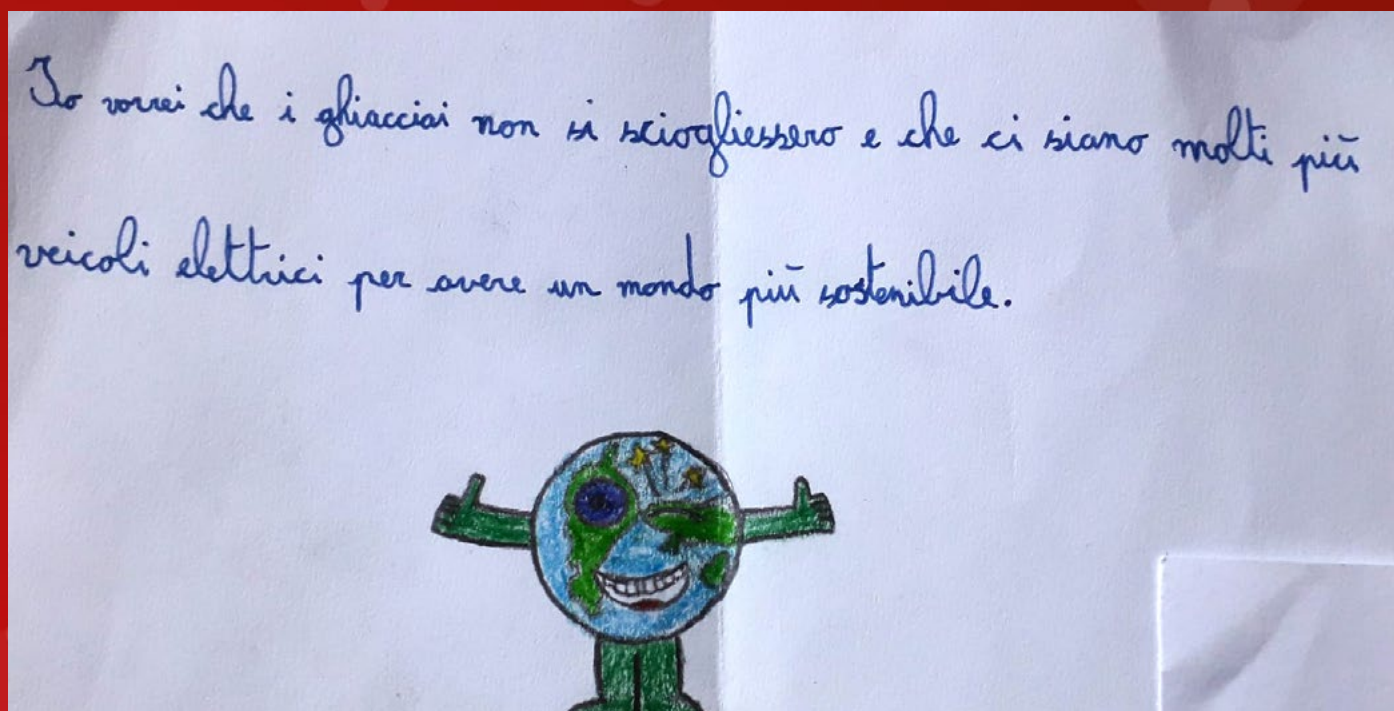 Io vorrei che i ghiacciai non si sciogliessero e che ci siano molti più
veicoli elettrici per avere un mondo più sostenibile.